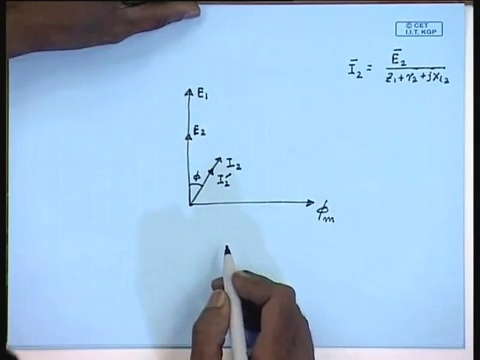 © CET
I.I.T. KGP
Ī₂ = Ē₂ / z₁ + r₂ + jx₁₂
E₁
E₂
φ
I₂
I₂′
φₘ